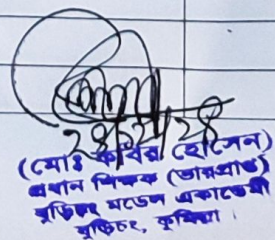 ২৪/১২/২৪
(মোঃ কবির হোসেন)
প্রধান শিক্ষক (ভারপ্রাপ্ত)
বুড়িচং মডেল একাডেমী
বুড়িচং, কুমিল্লা।